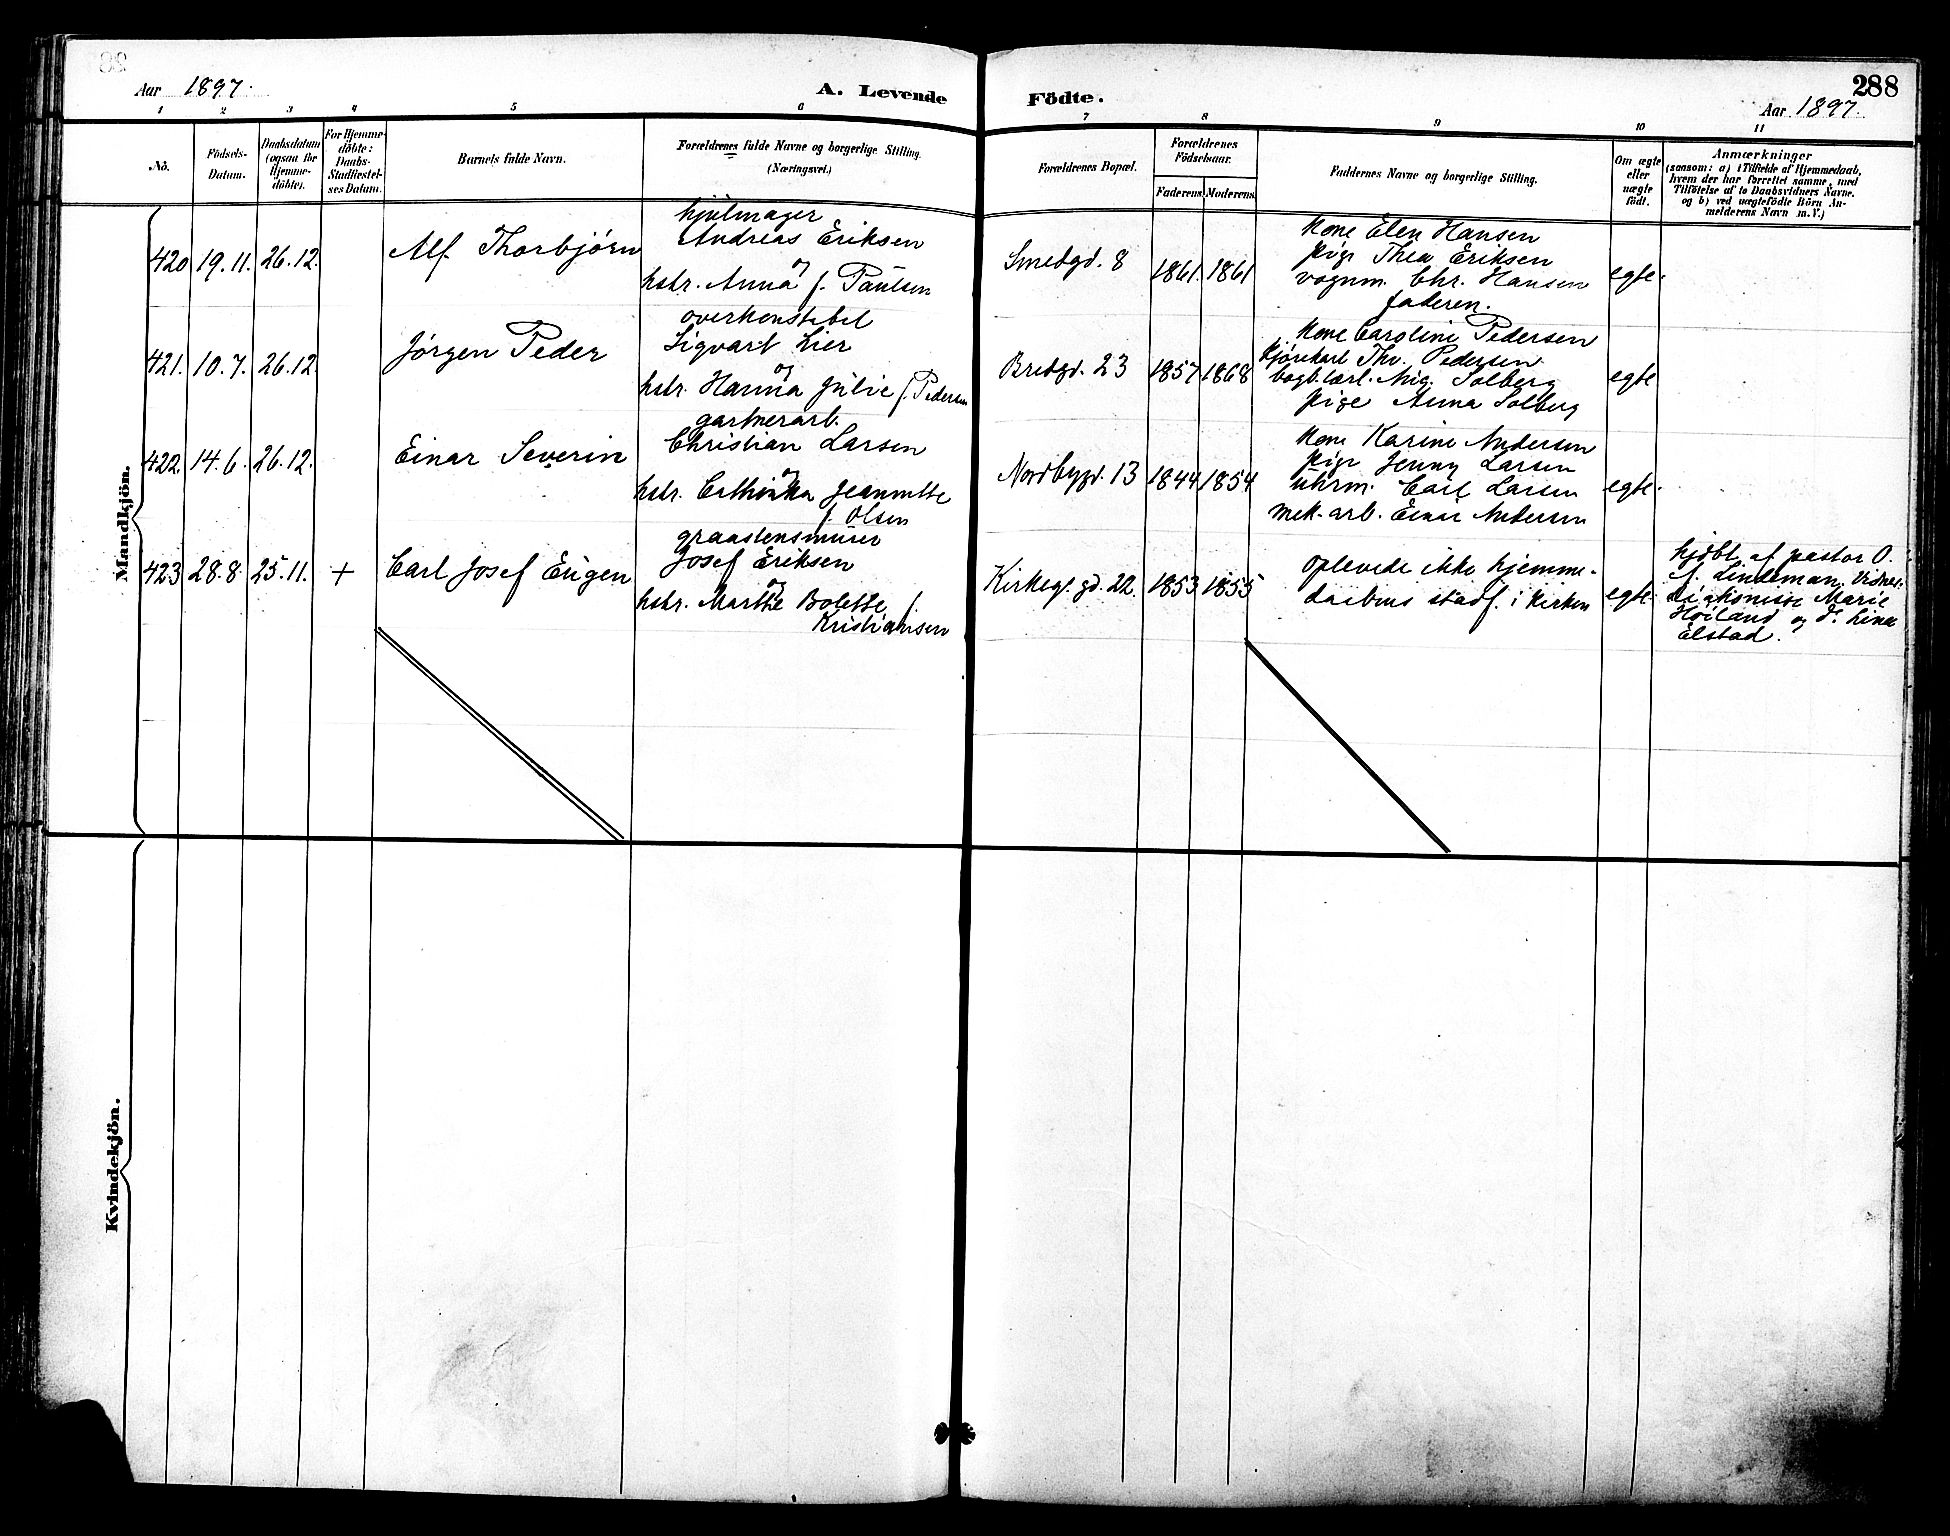 Aar 1897.
A. Levende Födte.
288
Aar 1897.
1 2 3 4 5 6 7 8 9 10 11
No.
Födsels-
Datum.
Daabsdatum
(ogsaa for
Hjemme-
döbte).
For Hjemme-
döbte:
Daabs-
Stadfæstel-
ses Datum.
Barnets fulde Navn.
Forældrenes fulde Navne og borgerlige Stilling.
(Næringsvei.)
Forældrenes Bopæl.
Forældrenes
Födselsaar.
Faderens Moderens
Faddernes Navne og borgerlige Stilling.
Om ægte
eller
uægte
födt.
Anmærkninger
(saasom: a) i Tilfælde af Hjemmedaab,
hvem der har forrettet samme, med
Tilföielse af to Daabsvidners Navne,
og b) ved uægtefödte Börn An-
melderens Navn m. V.)
Mandkjön.
420 19.11. 26.12. Alf Thorbjörn
hjulmager
Andreas Eriksen
og
hstr. Anna f. Paulsen
Smedgd. 8 1861. 1861
Kone Elen Hansen
pige Thea Eriksen
vognm. Chr. Hansen
faderen.
egte.
421. 10.7. 26.12. Jörgen Peder
overkonstabel
Sigvart Lier
og
hstr. Hanna Julie f. Pedersen
Bredgd. 23 1857 1868
Kone Caroline Pedersen
kjörekarl Thv. Pedersen
bogb.lærl. Aug. Solberg
pige Anna Solberg
egte
422. 14.6. 26.12. Einar Severin
gartnerarb.
Christian Larsen
og
hstr. Cathinka Jeanette
f. Olsen
Nordbygd. 13 1844 1854
Kone Karine Andersen
pige Jenny Larsen
uhrm. Carl Larsen
mek. arb. Einar Andersen
egte.
423 28.8. 25.11. + Carl Josef Eugen
graastensmurer
Josef Eriksen
og
hstr. Marthe Bolette f.
Kristiansen
Kirkeg. gd. 22. 1853 1855
oplevede ikke hjemme-
daabens stadf. i kirken
egte
hjdbt. af pastor O.
A. Lindeman. Vidner
diakonisse Marie
Höiland og do. Lina
Elstad.
Kvindekjön.